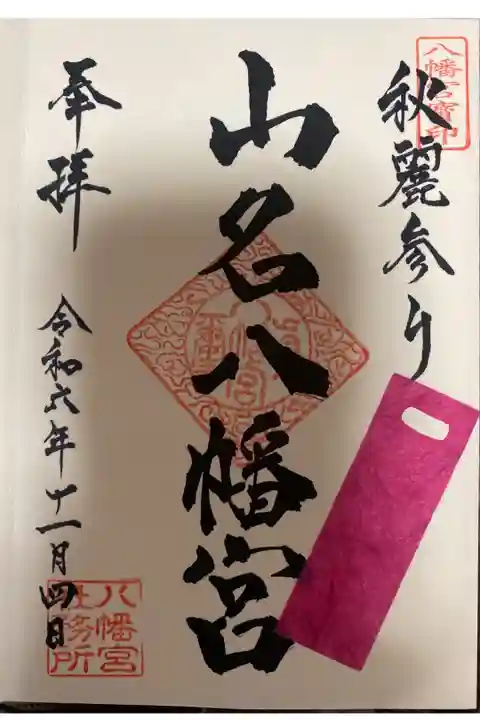 八幡宮寶印
秋麗参り
山名八幡宮
奉拝
令和六年十一月四日
八幡宮
社務所